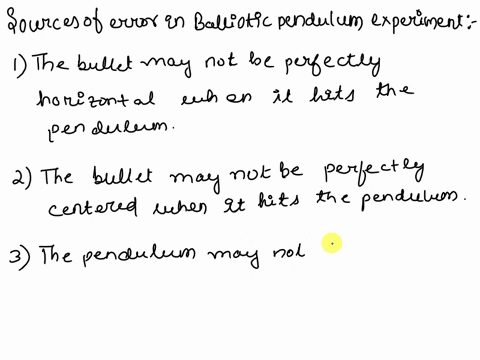 Sources of error in Balliotic pendulum experiment:-
1) The bullet may not be perfectly
horizontal when it hits the
pendulum.
2) The bullet may not be perfectly
centered when it hits the pendulum.
3) The pendulum may not